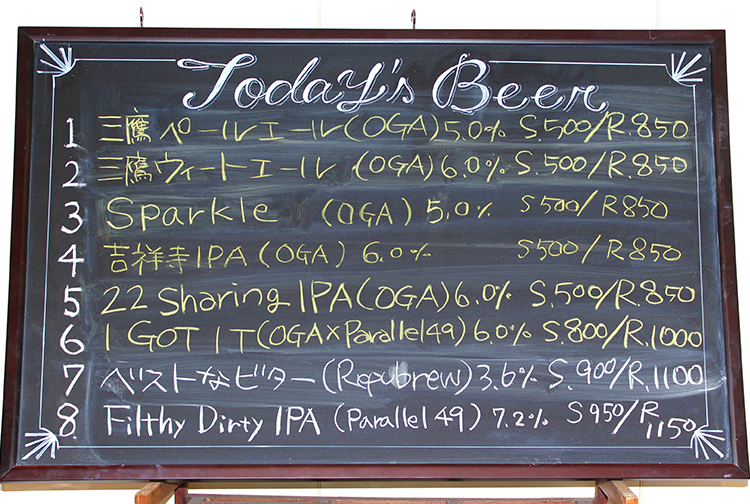 Today's Beer
1 三鷹ペールエール(OGA)5.0% S.500/R.850
2 三鷹ウィートエール(OGA)6.0% S.500/R.850
3 Sparkle (OGA) 5.0% S500/R850
4 吉祥寺IPA(OGA) 6.0% S500/R850
5 22 Sharing IPA(OGA)6.0% S.500/R.850
6 I GOT IT(OGA×Parallel49)6.0% S.800/R.1000
7 ベストなビター(Repubrew)3.6% S.900/R.1100
8. Filthy Dirty IPA (Parallel 49) 7.2% S950/R.1150